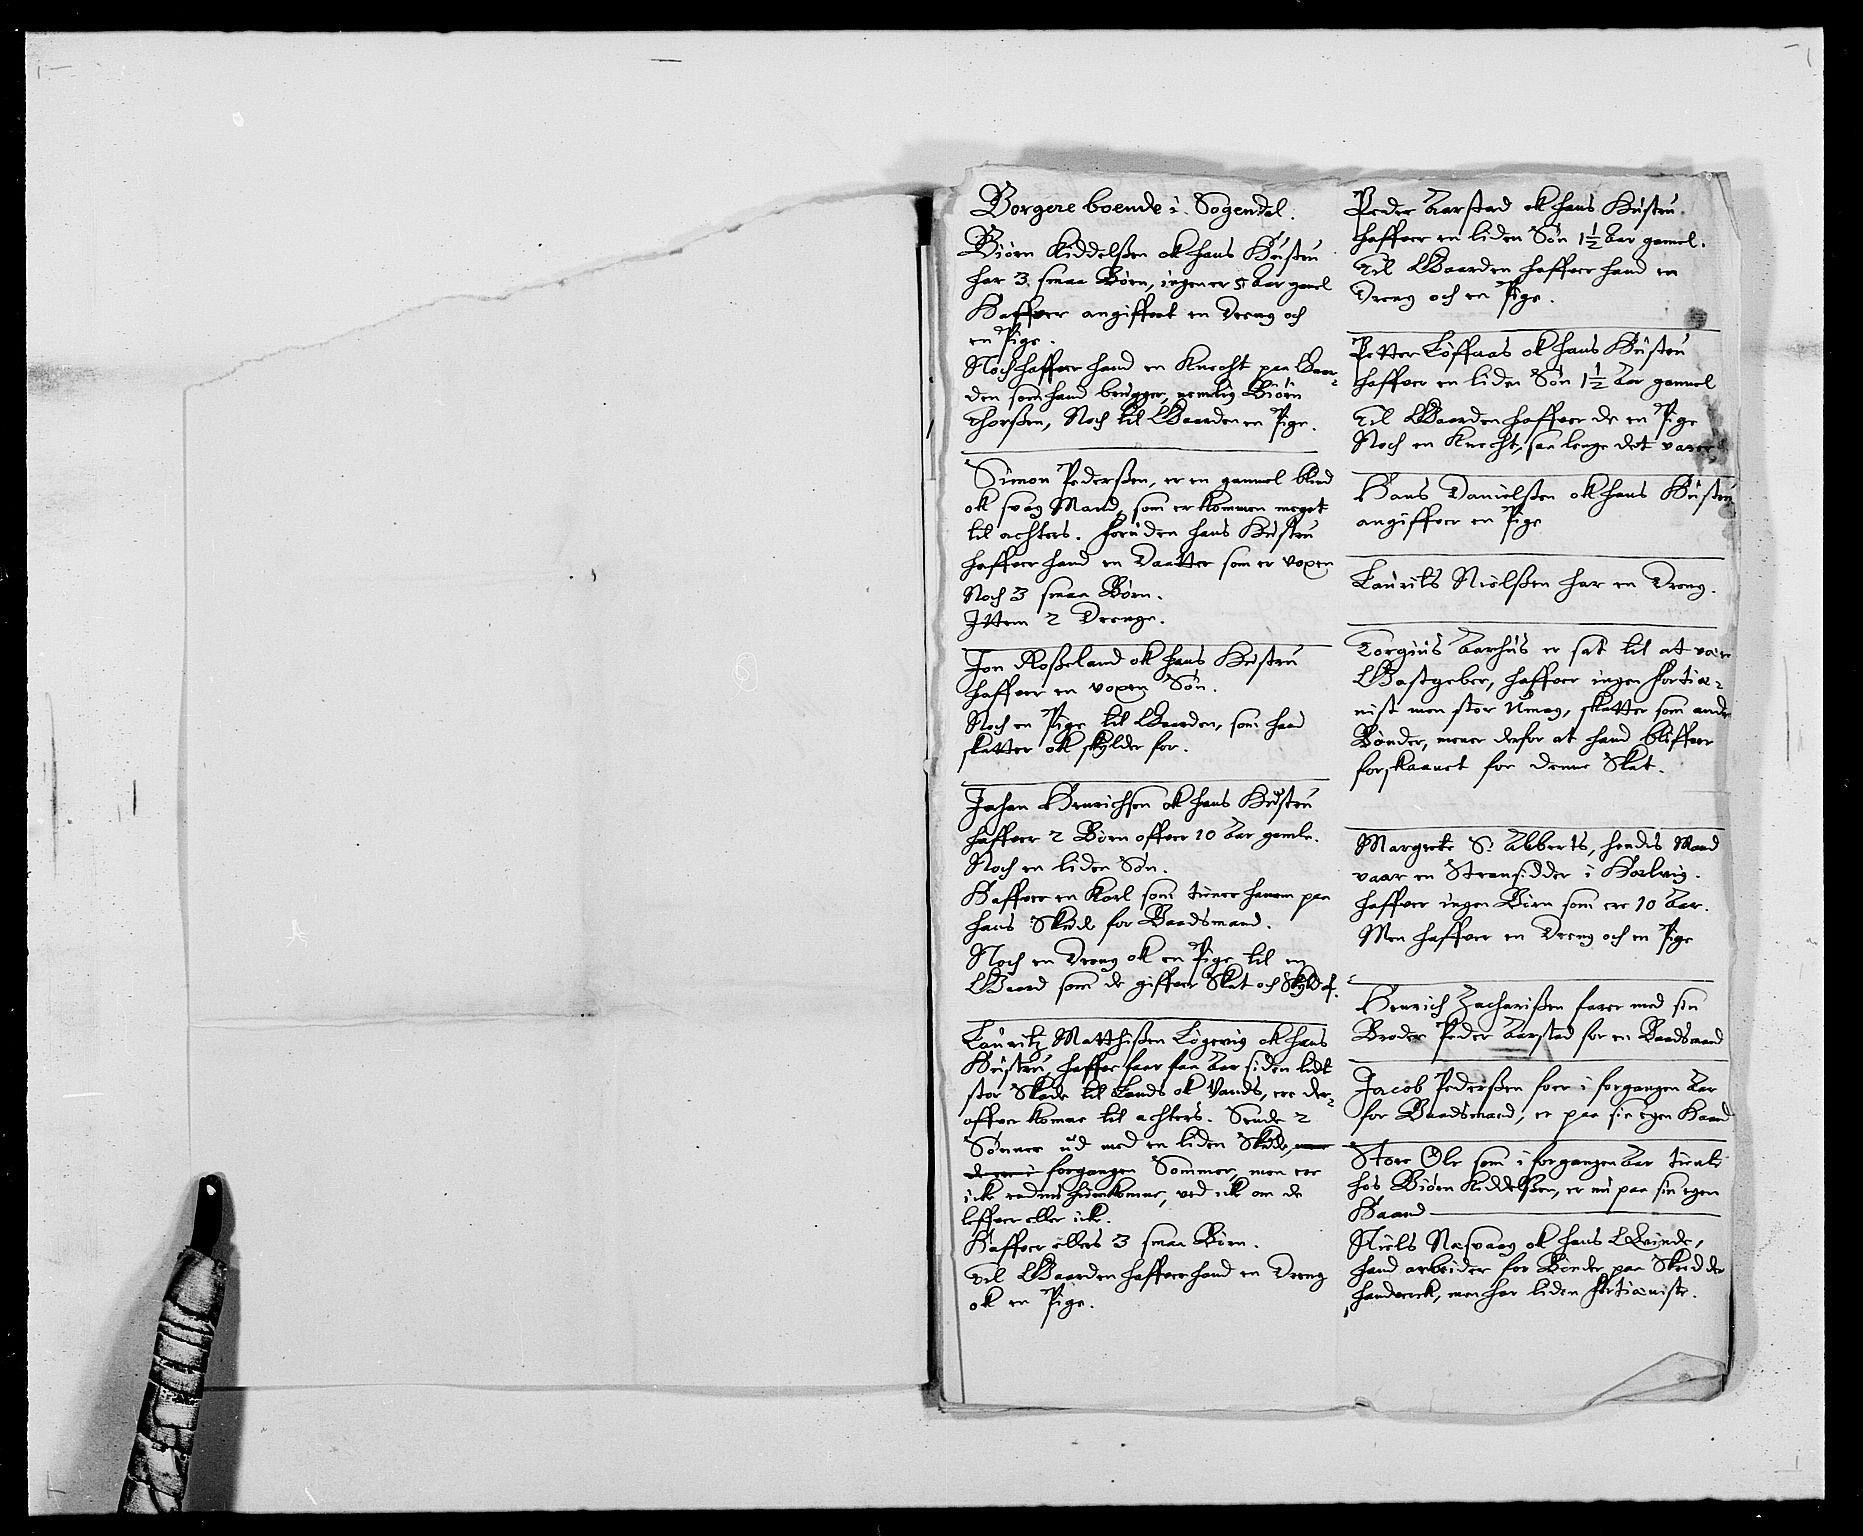 Borgere boende i Sogendal.
Biørn Kiddelßen ok hans Hustru
har 3 smaa Børn, ingen er 5 Aar gamel
Haffver angiffvet en Dreng och
en Pige.
Noch haffver hand en Knecht paa Gaar-
den som hand brugger, nemlig Biørn
Thorßen, Noch til Gaarden en Pige.
Simon Pederßen, er en gammel blind
ok svag Mand, som er kommen meget
til achters. Foruden hans Hustru
haffver hand en Daatter som er voxen
Noch 3 smaa Børn.
Ittem 2 Drenge.
Jon Roßeland ok hans Hustru
haffver en voxen Søn.
Noch en Pige til Gaarden, som hand
skatter ok skylder for.
Johan Henrichsen ok hans Hustru
haffver 2 Børn offver 10 Aar gamle.
Noch en liden Søn.
Haffver en Karl som tiener hanem paa
hans Skude for Baadsmand.
Noch en Dreng ok en Pige til en
Gaard som de giffver Skat och Skyld af.
Lauritz Matthißen Løgevig ok hans
Hustru, haffver faar faa Aar siden lidt
stor Skade til Lands ok Vands, ere der-
offver komne til achters. Sende 2
Sønner ud med en liden Skude,
forgangen Sommer, men ere
icke endnu hiemkomne, ved ick om de
leffver eller icke.
Haffver ellers 3 smaa Børn.
Til Gaarden haffver hand en Dreng
ok en Pige.
Peder Aarstad ok hans Hustru
haffver en liden Søn 1½ Aar gamel.
Til Gaarden haffver hand en
Dreng och en Pige.
Petter Løffaas ok hans Hustru
haffver en liden Søn 1½ Aar gammel
Til Gaarden haffver de en Pige
Noch en Knecht, saa lenge det varer
Hans Danielßen ok hans Hustru
angiffver en Pige
Laurits Nielßen har en Dreng.
Torgius Aarhus er sat til at være
Gastgeber, haffver ingen fortie-
nist men stor Umag, skatter som andre
Bønder, mener derfor at hand bliffver
forskaanet for denne Skat.
Margrete S. Abberts, hendis Mand
vaar en Stransidder i Horlevig.
haffver ingen Børn som ere 10 Aar.
Men haffver en Dreng och en Pige
Henrich Zacharißen farer med sin
Broder Peder Aarstad for en Baadsmand
Jacob Pederßen foer i forgangen Aar
for Baadsmand, er paa sin egen Haand
Store Ole som i forgangen Aar tiente
hos Biørn Kiddelßen, er nu paa sin egen
Haand
Niels Nesvaag ok hans Qvinde,
hand arbeider for Bønder paa Skredder
handverck, men har liden fortieniste.